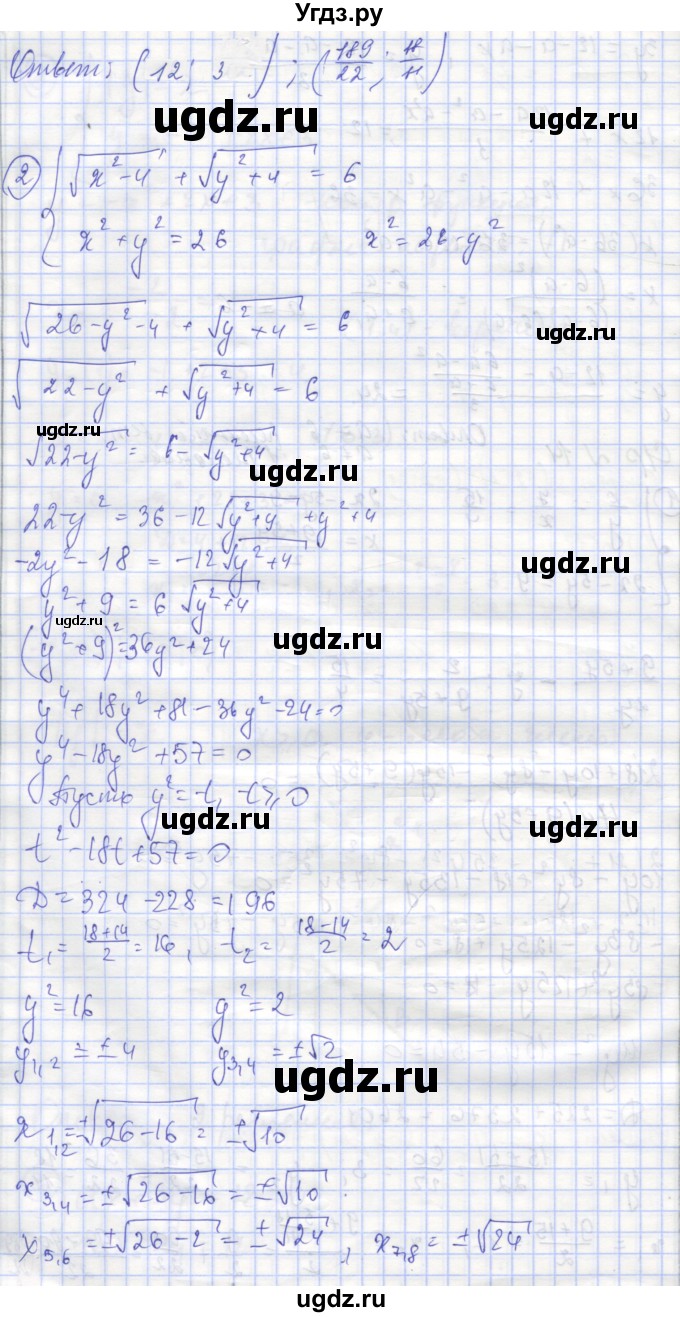 Угдз.ру
Ответ: (12; 3); (189/22; 18/11)
ugdz.ru ugdz.ru
2) { √(x²-4) + √(y²+4) = 6
x²+y² = 26 x² = 26-y²
√(26-y²-4) + √(y²+4) = 6
ugdz.ru
√(22-y²) + √(y²+4) = 6
ugdz.ru
√(22-y²) = 6 - √(y²+4)
ugdz.ru
22-y² = 36 - 12√(y²+4) + y²+4
-2y² - 18 = -12√(y²+4)
ugdz.ru
y² + 9 = 6√(y²+4)
ugdz.ru
(y²+9)² = 36y²+24
ugdz.ru
y⁴ + 18y² + 81 - 36y² - 24 = 0
y⁴ - 18y² + 57 = 0
Пусть y² = t, t ≥ 0
ugdz.ru ugdz.ru
t² - 18t + 57 = 0
D = 324 - 228 = 196
t₁ = (18+14)/2 = 16, t₂ = (18-14)/2 = 2
y² = 16 y² = 2
y₁,₂ = ±4 y₃,₄ = ±√2
ugdz.ru
x₁,₂ = ±√(26-16) = ±√10
x₃,₄ = ±√(26-16) = ±√10
x₅,₆ = ±√(26-2) = ±√24, x₇,₈ = ±√24
ugdz.ru